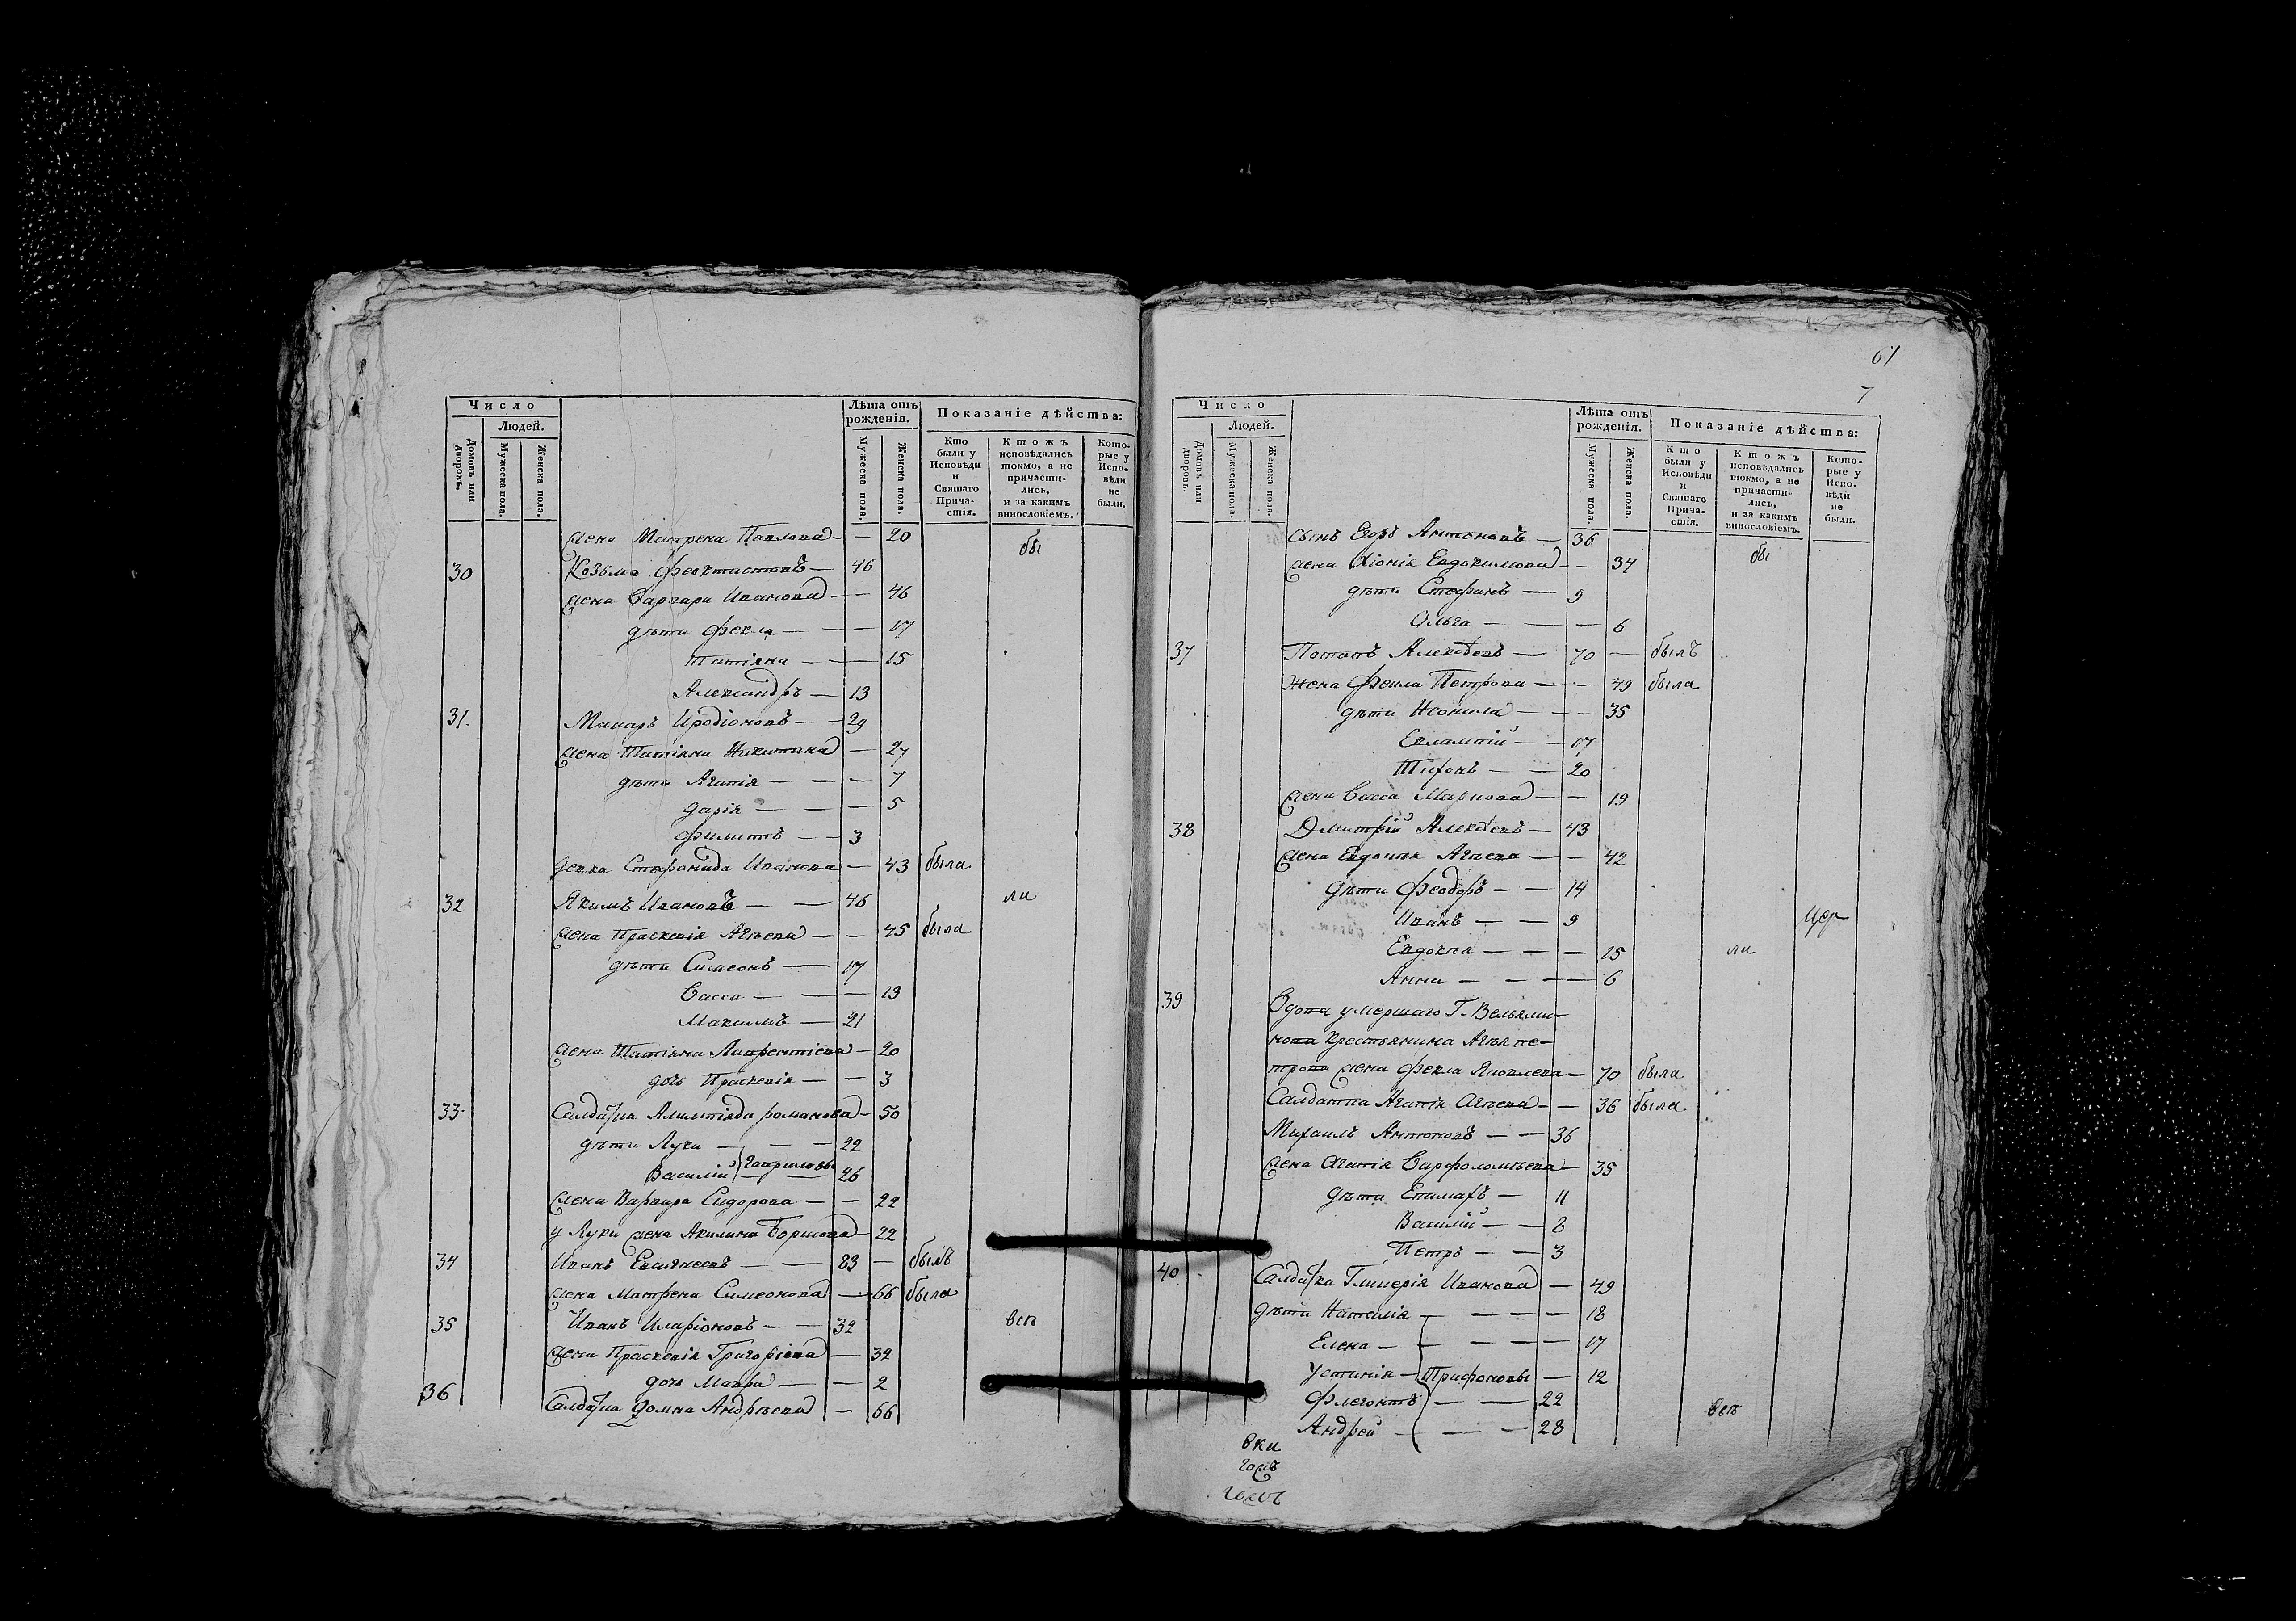 Число
Людей.
Домовъ или дворовъ.
Мужеска пола.
Женска пола.
Лѣта отъ рожденія.
Мужеска пола.
Женска пола.
Показаніе дѣйства:
Кто были у Исповѣди и Святаго Причастія.
Ктожъ исповѣдались токмо, а не причастились, и за какимъ винословіемъ.
Которые у Исповѣди не были.
жена Матрена Павлова — — 20 бы
30 Козьма Феоктистовъ — 46
жена Варвара Иванова — — 46
дѣти Фекла — — — 17
Татіяна — — — 15
Александръ — 13
31. Макаръ Иродіоновъ — — 29
жена Татіяна Никитина — 27
дѣти Агапія — — — 7
Дарія — — — 5
Филиппъ — — 3
девка Стефанида Иванова — 43 была
32 Якимъ Ивановъ — — 46 ли
жена Праскевія Агѣева — — 45 была
дѣти Симеонъ — 17
Васса — — — 13
Максимъ — 21
жена Татіяна Лаврентіева — 20
дочь Праскевія — — 3
33. Салдатка романова — 50
дѣти Луки — — — 22
Василій Гавриловы — — 26
жена Варвара Сидорова — — 22
у Луки жена Акилина — 22
34 Иванъ — — 83 — былъ
жена Матрена Симеонова — 66 была
35 Иванъ Иларіоновъ — — 32 всѣ
жена Праскевія Григоріева — 32
дочь Мавра — — 2
36 Салдатка Домна Андрѣева — 66
67
7
Число
Людей.
Домовъ или дворовъ.
Мужеска пола.
Женска пола.
Лѣта отъ рожденія.
Мужеска пола.
Женска пола.
Показаніе дѣйства:
Кто были у Исповѣди и Святаго Причастія.
Ктожъ исповѣдались токмо, а не причастились, и за какимъ винословіемъ.
Которые у Исповѣди не были.
сынъ Егоръ Антоновъ — 36
жена Хіонія Евдокимова — — 34 бы
дѣти Стефанъ — 9
Ольга — — — 6
37 Потапъ Алексѣевъ — 70 — былъ
Жена Фекла Петрова — — 49 была
дѣти Неонила — — — 35
Евлампій — — 17
Тихонъ — — 20
жена Васса Маркова — — 19
38 Дмитрій Алексѣевъ — 43
жена Евдокія Агѣева — — 42
дѣти Феодоръ — — 14
Иванъ — — 9
Евдокія — — — 15 ли
Анна — — — 6
39 Вдова умершаго Г. Вельями-
нова крестьянина Агѣя пе-
трова жена Фекла Яковлева — 70 была
Салдатка Агапія Агѣева — — 36 была.
Михаилъ Антоновъ — — 36
жена Агапія Варфоломѣева — 35
дѣти Епимахъ — 11
Василій — — 8
Петръ — — 3
40 Салдатка Гликерія Иванова — 49
дѣти Наталія — — — — 18
Елена — — — — 17
Устинія — Трифоновы — 12
Флегонтъ — — 22 всѣ
Андрей — — — 28